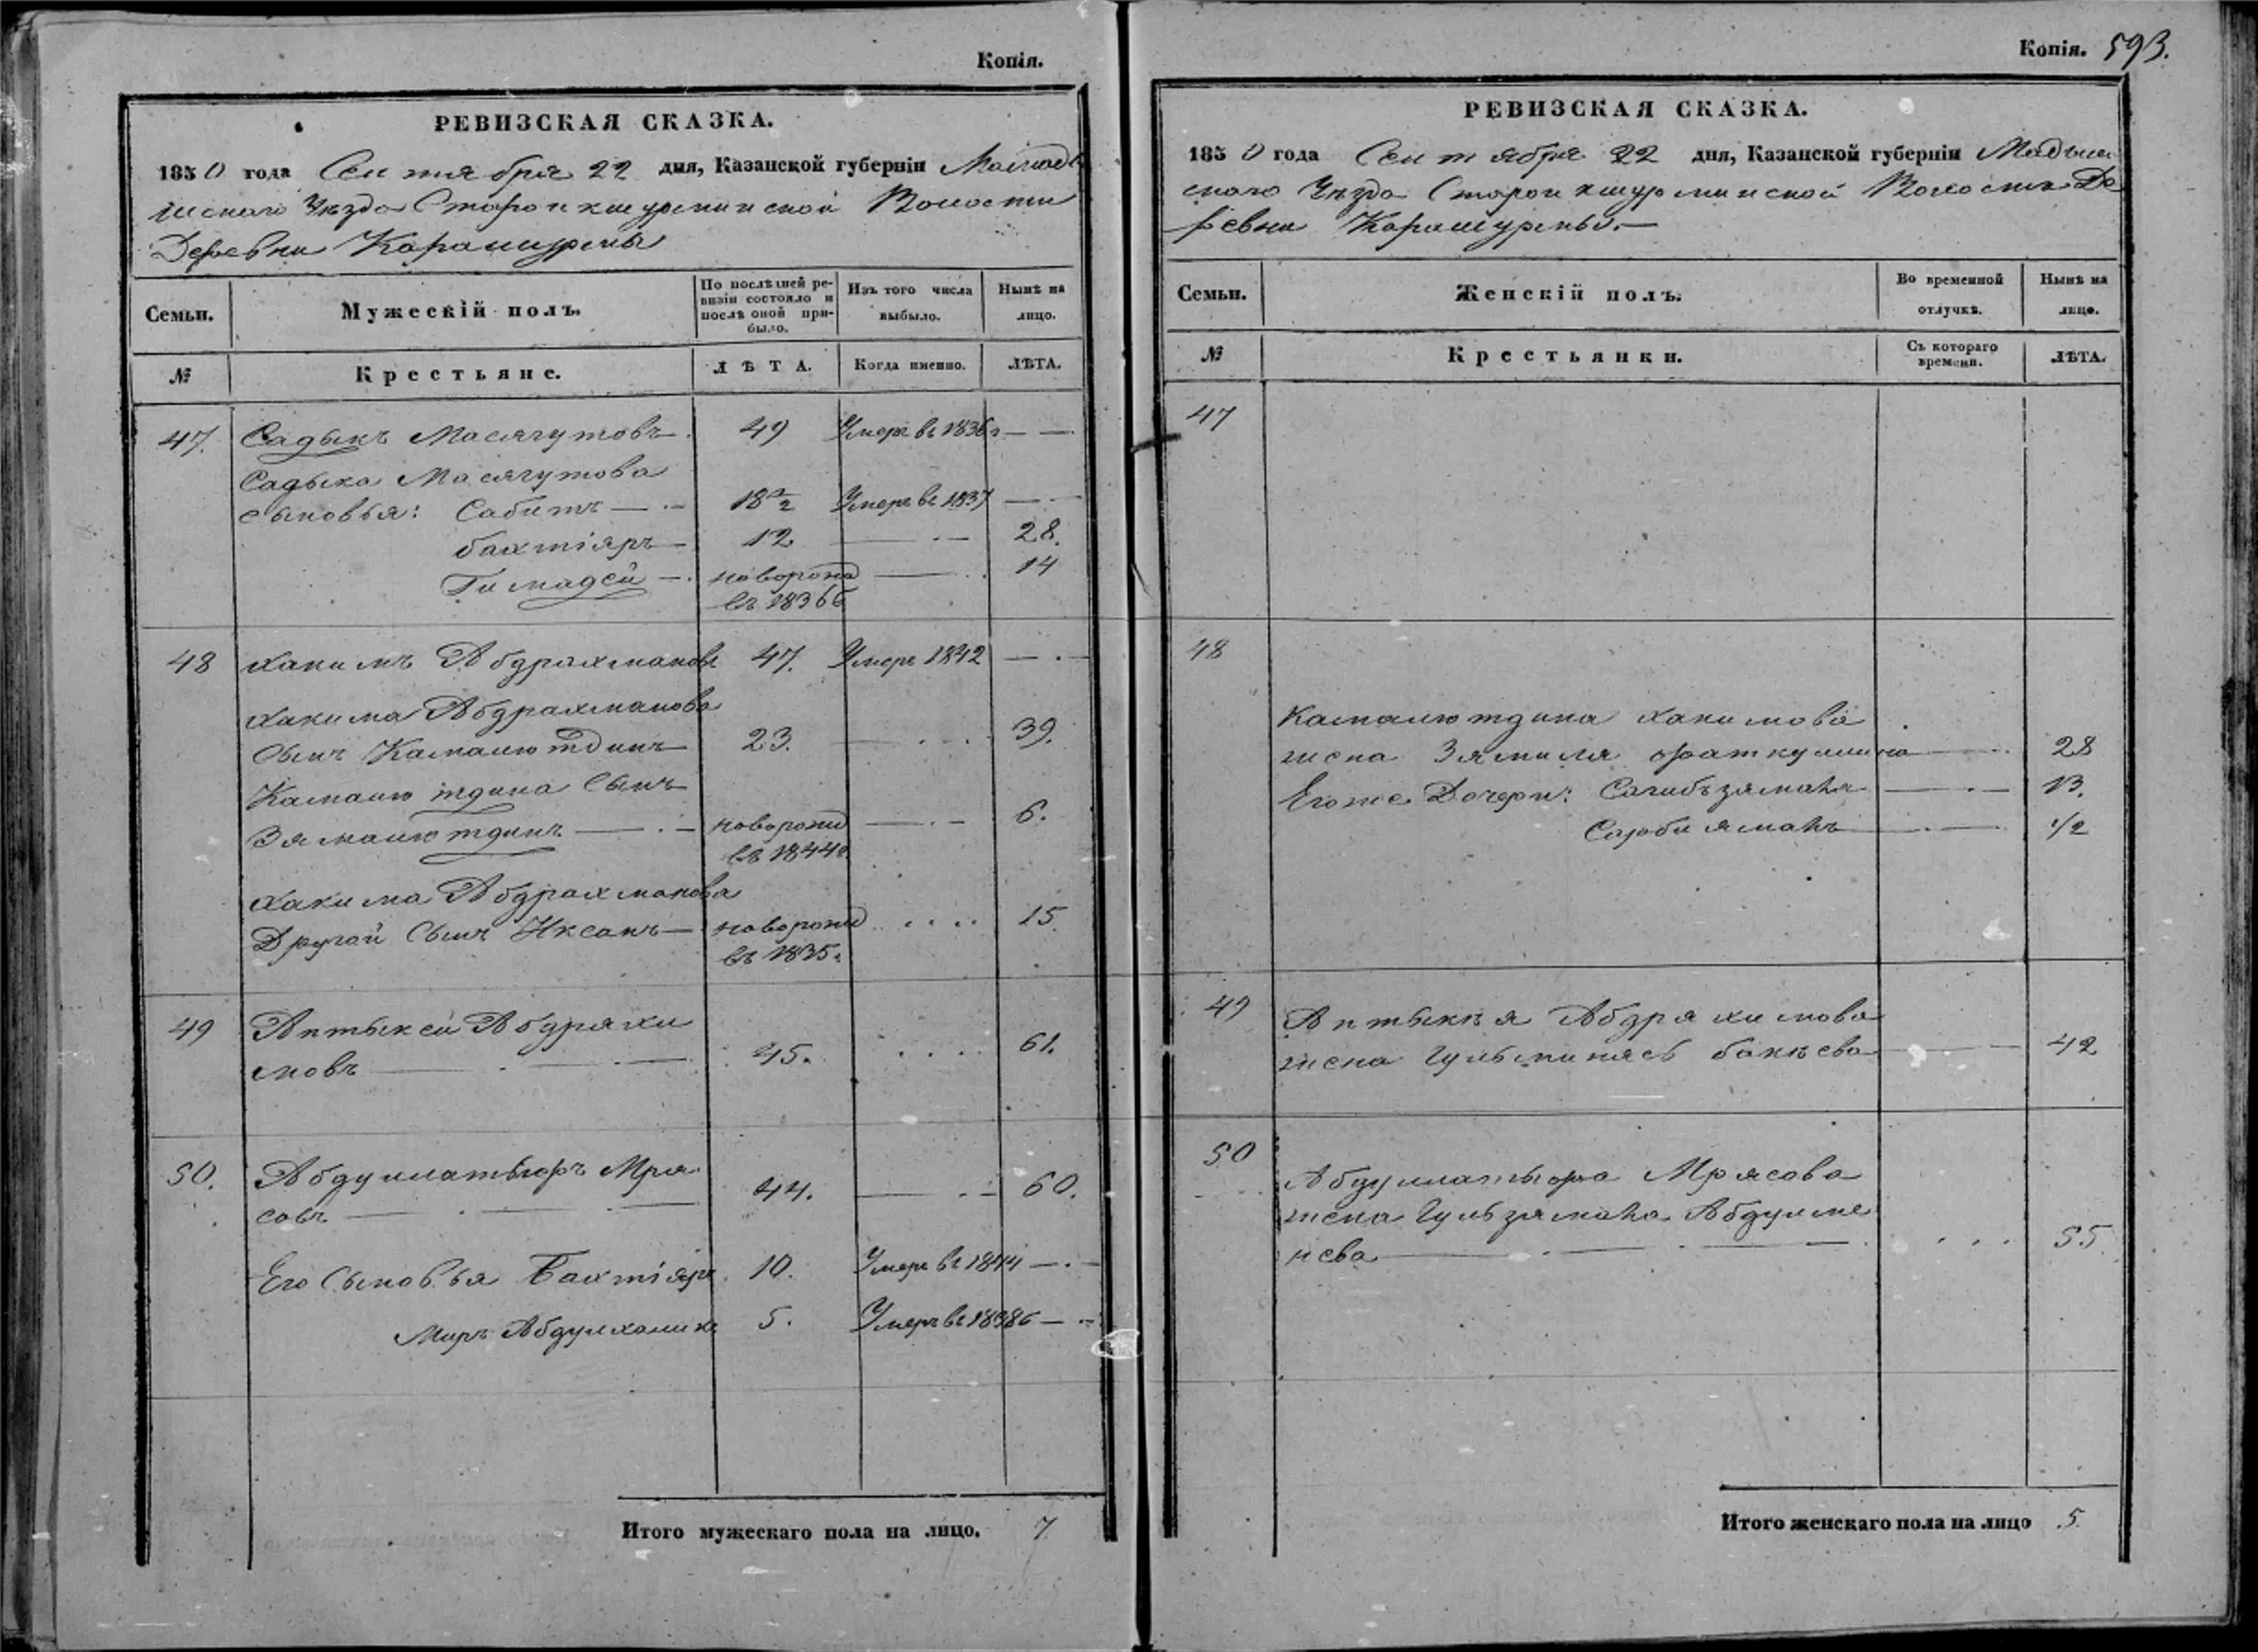 Копія.
РЕВИЗСКАЯ СКАЗКА.
1850 года Сентября 22 дня, Казанской губерніи Мамады
шскаго Уѣзда Старо икшурминской Волости
Деревни Карашурмы
Семьи.
Мужескій полъ.
По послѣдней ре-
визіи состояло и
послѣ оной при-
было.
Изъ того числа
выбыло.
Нынѣ на
лицо.
№
Крестьяне.
ЛѢТА.
Когда именно.
ЛѢТА.
47. Садыкъ Масягутовъ 49 Умеръ въ 1836 г — —
Садыка Масягутова
сыновья: Сабитъ — 18 1/2 Умеръ въ 1837 — —
бахтіяръ — 12 — 28.
Гимадей — новорожд — 14
въ 1836
48 Хакимъ Абдрахмановъ 47. Умеръ 1842 — —
Хакима Абдрахманова
Сынъ Камалютдинъ 23. — 39.
Камалютдина Сынъ
Зямалютдинъ — новорожд — 6.
въ 1844
Хакима Абдрахманова
Другой Сынъ Иксанъ — новорожд .... 15.
въ 1835.
49 Аптыкей Абдряхи
мовъ — 45. .... 61.
50. Абдуллатыфъ Мря
совъ — 44. — 60.
Его Сыновья Бахтіяръ 10. Умеръ въ 1844 — —
Миръ Абдулхаликъ 5. Умеръ въ 1838 — —
Итого мужескаго пола на лицо. 7
Копія. 593.
РЕВИЗСКАЯ СКАЗКА.
1850 года Сентября 22 дня, Казанской губерніи Мадыш
скаго Уѣзда Староикшурминской Волости Де
ревни Карашурмы. —
Семьи.
Женскій полъ.
Во временной
отлучкѣ.
Нынѣ на
лицо.
№
Крестьянки.
Съ котораго
времени.
ЛѢТА.
47
48
Камалютдина Хакимова
жена Зямиля Фаткуллина — 28
Егоже Дочери: Сагибъзямала — 13.
— 1/2
49 Аптыкѣя Абдряхимова
жена Гульминясь бакѣева — 42
50
Абдуллатыфа Мрясова
жена Гульзямала Абдулме
нева — ... 55
Итого женскаго пола на лицо 5.